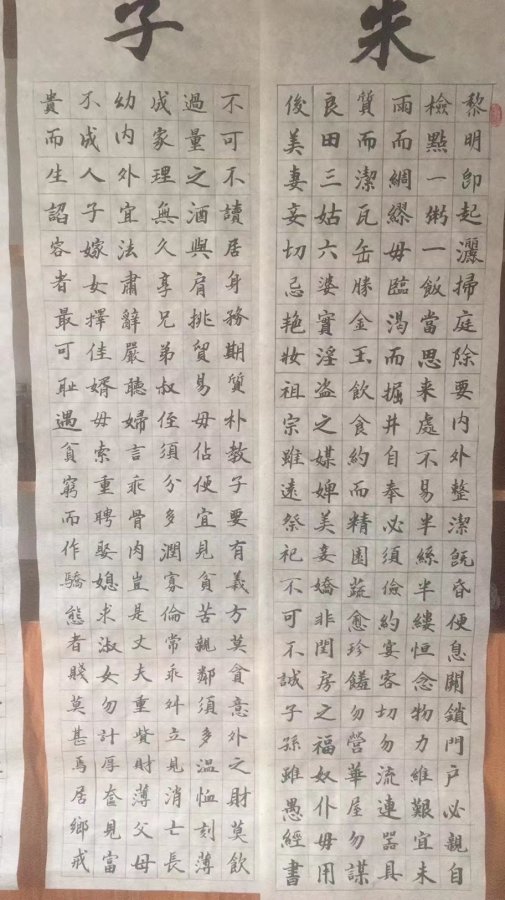 朱子
黎明卽起灑掃庭除要内外整潔旣昏便息關鎖門戶必親自
檢點一粥一飯當思来處不易半絲半縷恒念物力維艱宜未
雨而綢繆毋臨渴而掘井自奉必須儉約宴客切勿流連器具
質而潔瓦缶勝金玉飲食約而精園蔬愈珍饈勿營華屋勿謀
良田三姑六婆實淫盜之媒婢美妾嬌非閨房之福奴仆毋用
俊美妻妾切忌艳妝祖宗雖遠祭祀不可不誠子孫雖愚經書
不可不讀居身務期質朴教子要有義方莫貪意外之財莫飲
過量之酒與肩挑貿易毋佔便宜見貧苦親鄰須多温恤刻薄
成家理無久享兄弟叔侄須分多潤寡倫常乖舛立見消亡長
幼内外宜法肅辭嚴聽婦言乖骨肉豈是丈夫重貲財薄父母
不成人子嫁女擇佳婿毋索重聘娶媳求淑女勿計厚奩見富
貴而生諂容者最可耻遇貧窮而作驕態者賤莫甚焉居鄉戒